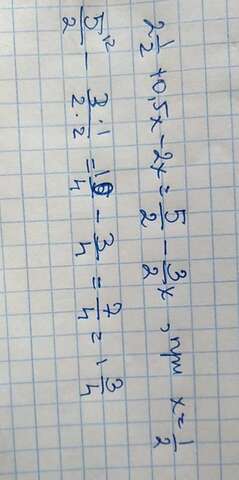 2 1/2 + 0,5x - 2x = 5/2 - 3/2 x, при x = 1/2
5/2 ^12 - 3·1/2·2 = 10/4 - 3/4 = 7/4 = 1 3/4